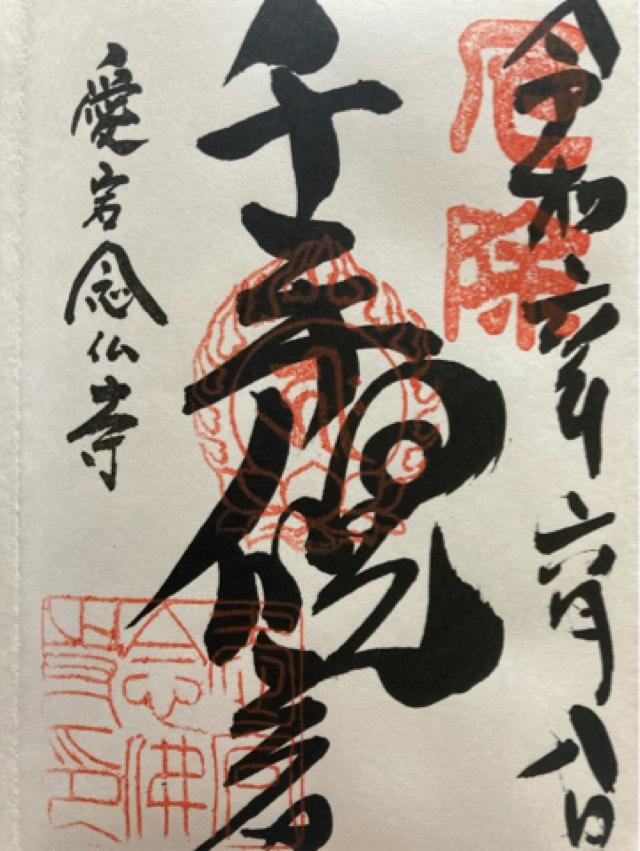 厄除
令和六年六月八日
千手観音
愛宕念仏寺
愛宕念佛寺印